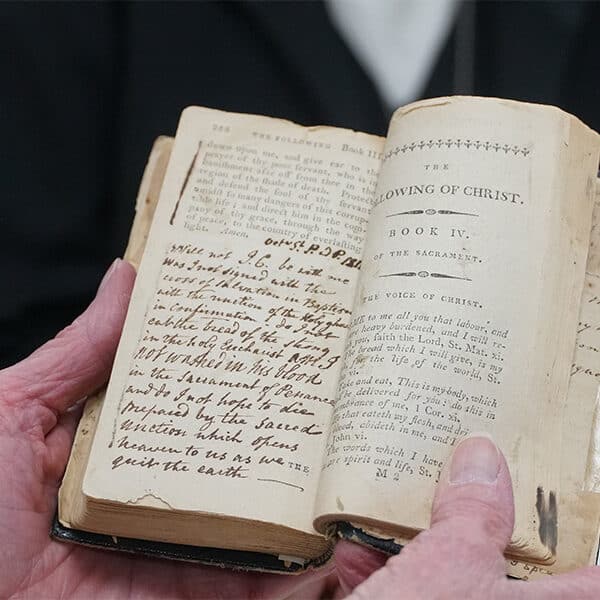 THE FOLLOWING Book III.
down upon me, and give ear to the
prayer of thy poor servant, who is in
banishment afar off from thee in the
region of the shade of death. Protect
and defend the soul of thy servant
amidst so many dangers of this corrup-
tible life; and direct him in the com-
pany of thy grace, through the way
of peace, to the country of everlasting
light. Amen.
Will not J.C. be with me
Was I not signed with the
cross of Salvation in Baptism
with the unction of the Holy ghost
in Confirmation - do I not
eat the bread of the strong
in the Holy Eucharist am I
not washed in his blood
in the Sacrament of Penance
and do I not hope to die
prepared by the Sacred
unction which opens
heaven to us as we
THE
quit the earth —
THE
LOWING OF CHRIST.
BOOK IV.
OF THE SACRAMENT.
THE VOICE OF CHRIST.
ME to me all you that labour, and
are heavy burdened, and I will re-
you, saith the Lord, St. Mat. xi.
The bread which I will give, is my
for the life of the world, St.
vi.
Take and eat, This is my body, which
be delivered for you: do this in
remembrance of me, 1 Cor. xi.
that eateth my flesh, and drin-
blood, abideth in me, and I
John vi.
The words which I have
are spirit and life, St. J
M 2